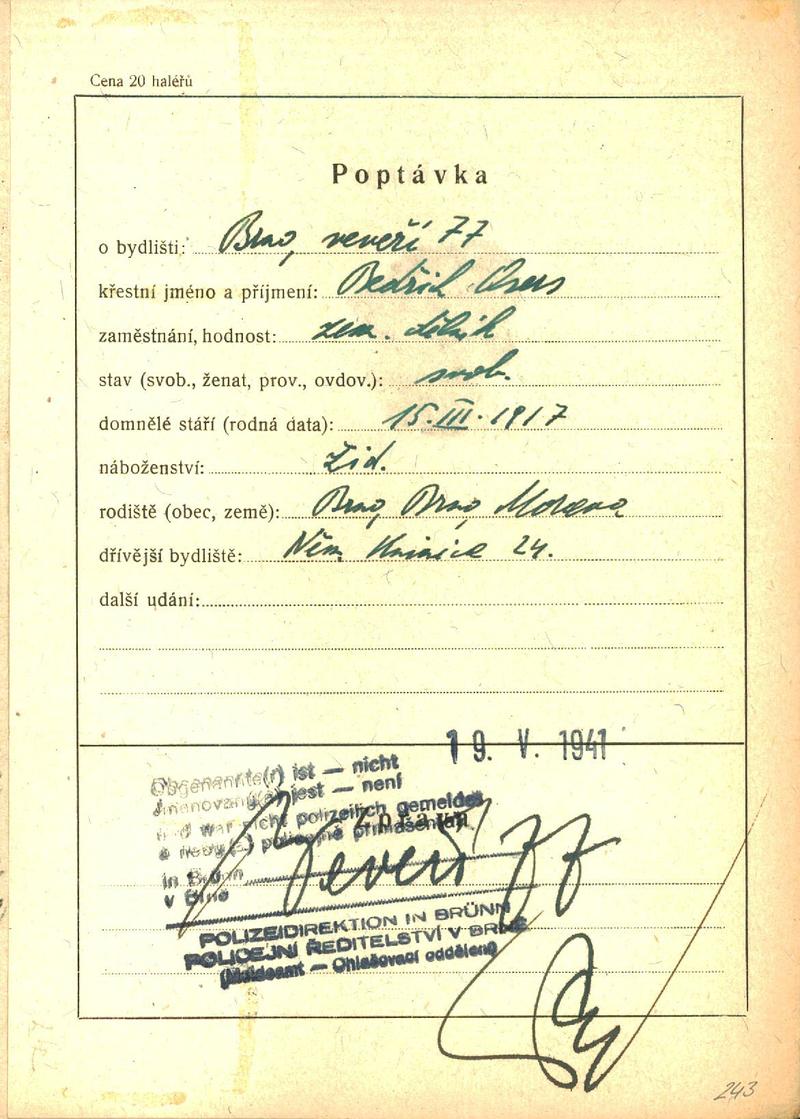 Cena 20 haléřů
Poptávka
o bydlišti: Brno, veveří 77
křestní jméno a příjmení: Bedřich Osers
zaměstnání, hodnost: zem. dělník
stav (svob., ženat, prov., ovdov.): svob.
domnělé stáří (rodná data): 15. III. 1917
náboženství: žid.
rodiště (obec, země): Brno, Brno, Morava
dřívější bydliště: Něm. Kninice 24.
další udání:
19. V. 1941
Obgenannte(r) ist — nicht
Jmenovaný(á) jest — není
und war nicht polizeilich gemeldet
a nebyl(a) policejně přihlášen(a)
Zpráva
in Brünn
v Brně
Veveří 77
POLIZEIDIREKTION IN BRÜNN
POLICEJNÍ ŘEDITELSTVÍ V BRNĚ
(Meldeamt — Ohlašovací oddělení)
243